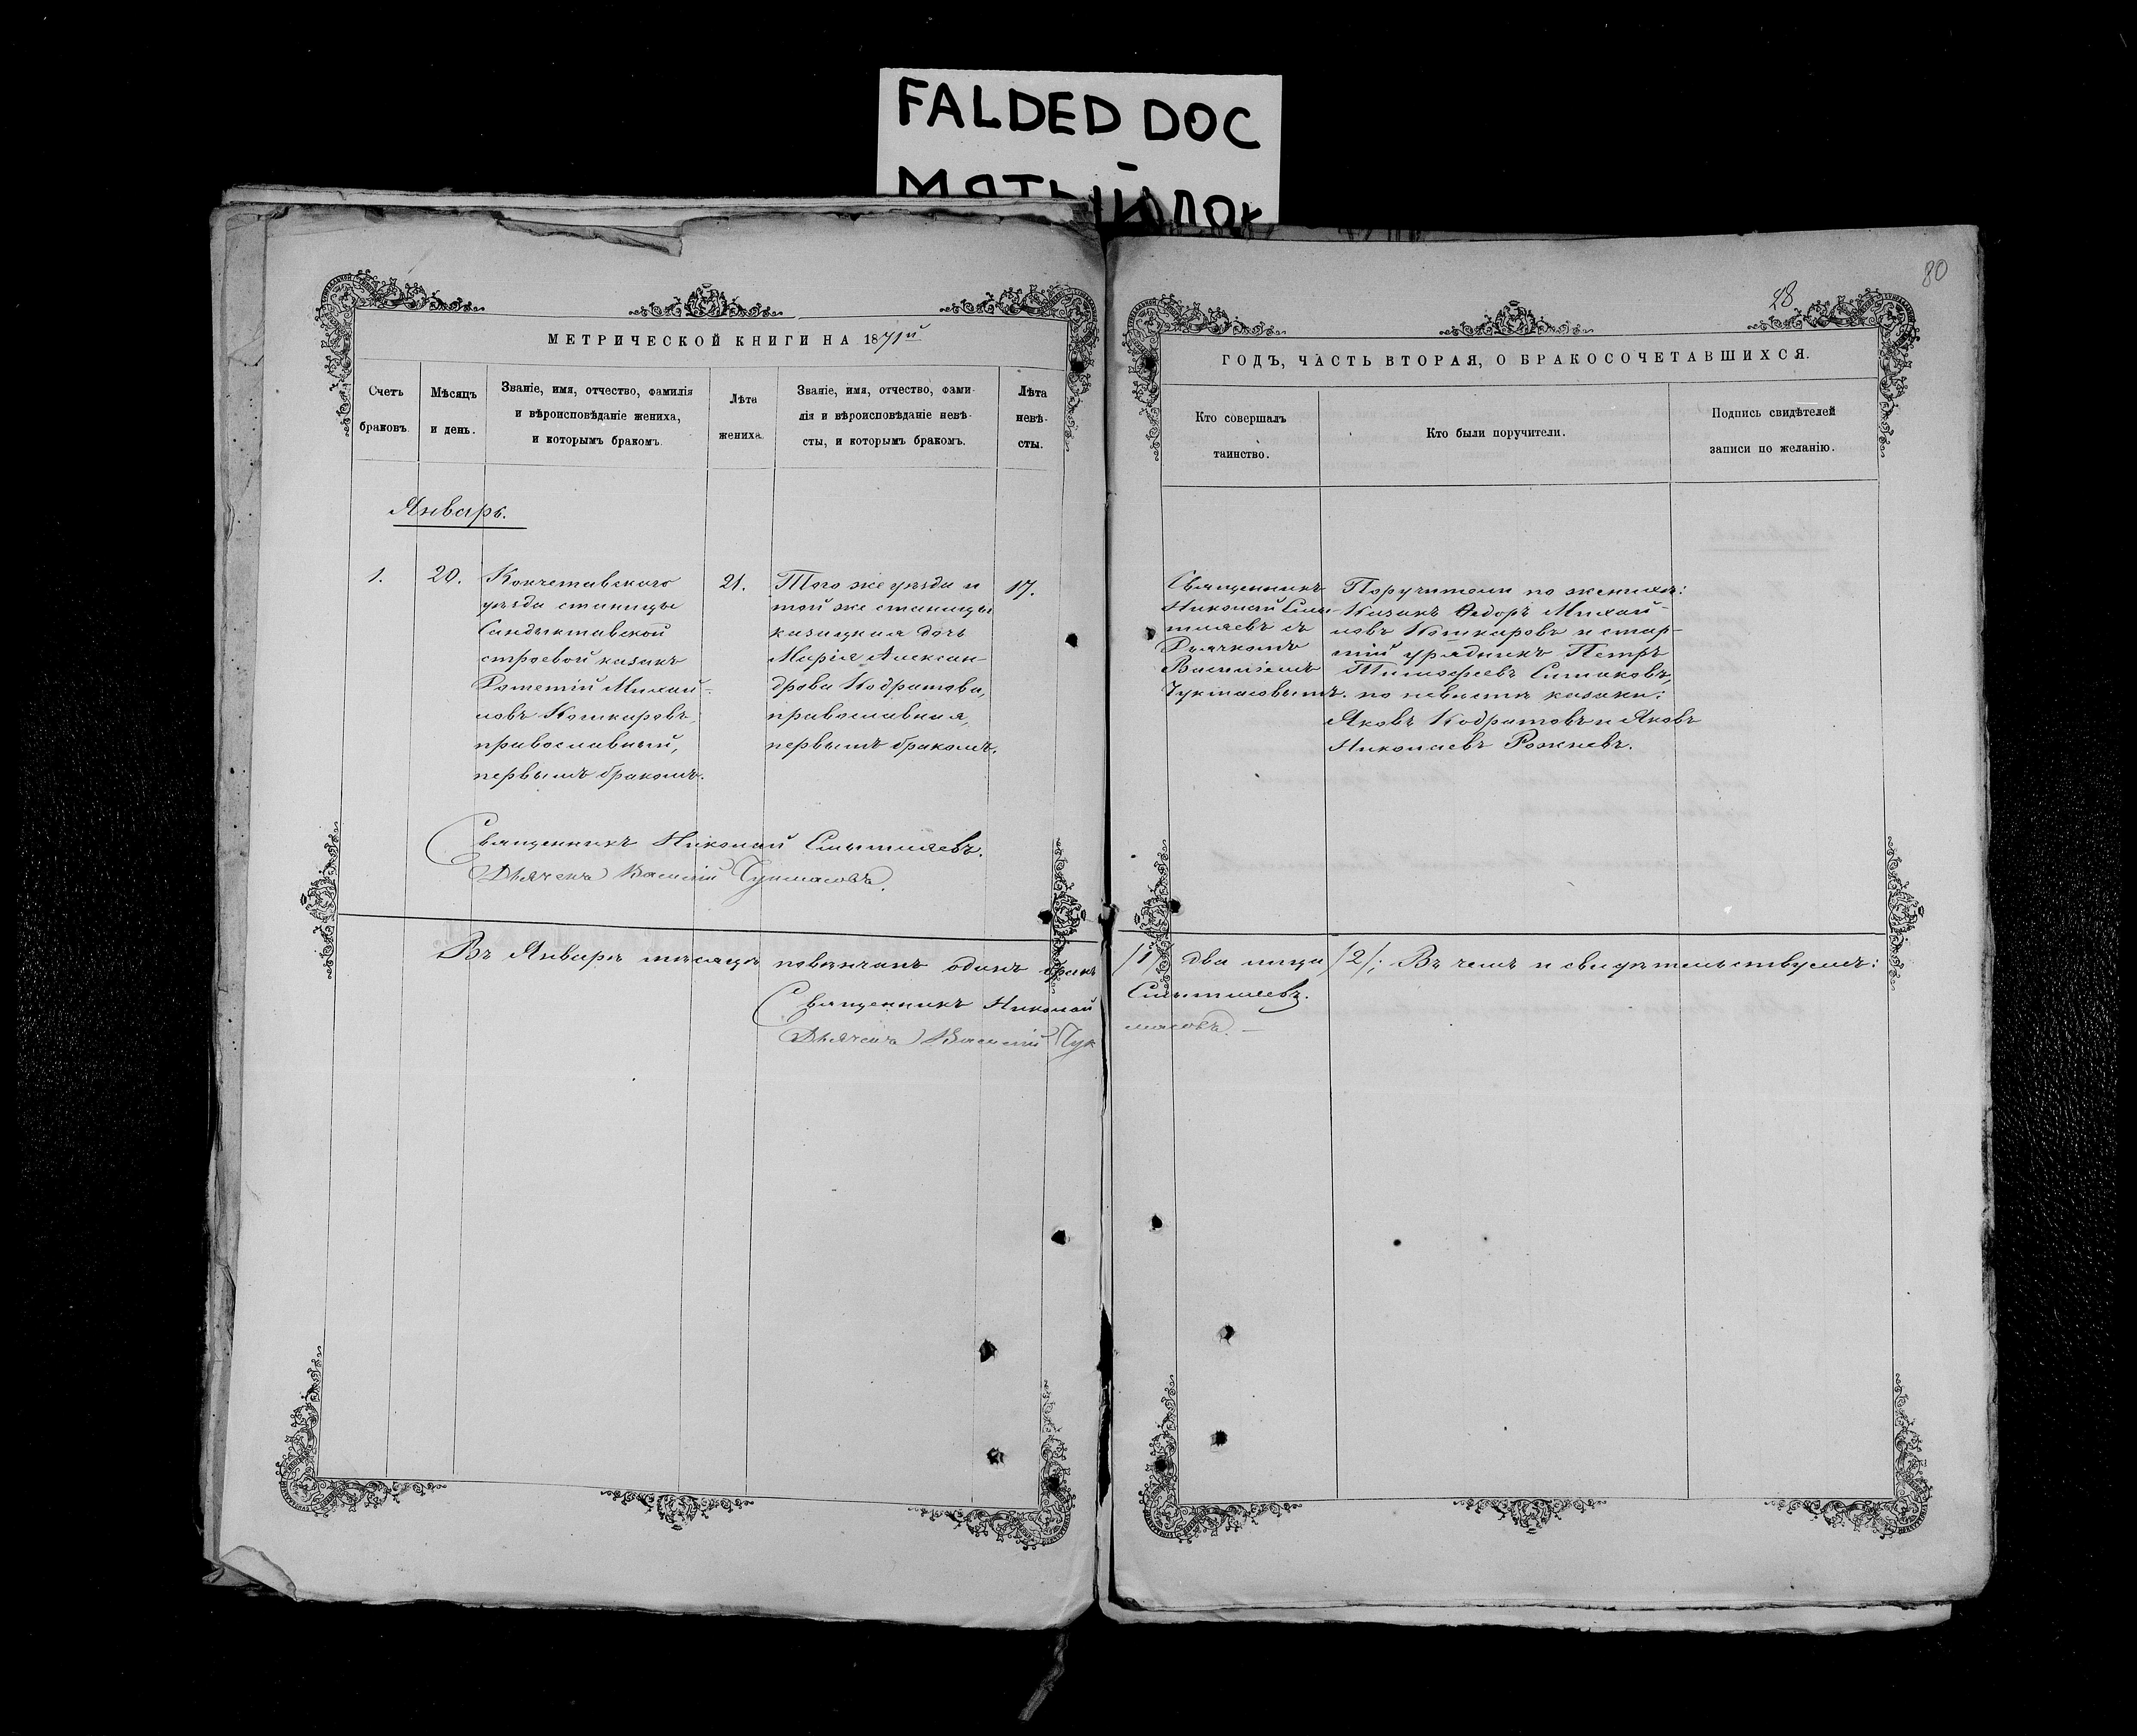 FALDED DOC
МЯТЫЙ ДОК
80
28.
МЕТРИЧЕСКОЙ КНИГИ НА 1871й
Счетъ
браковъ.
Мѣсяцъ
и день.
Званіе, имя, отчество, фамилія
и вѣроисповѣданіе жениха,
и которымъ бракомъ.
Лѣта
жениха.
Званіе, имя, отчество, фами-
лія и вѣроисповѣданіе невѣ-
сты, и которымъ бракомъ.
Лѣта
невѣ-
сты.
Январь.
1.
20.
Кокчетавскаго
уѣзда станицы
Сандыктавской
строевой казакъ
Михай-
ловъ Кошкаровъ,
православный,
первымъ бракомъ.
21.
Того же уѣзда и
той же станицы
казацкая дочь
Марія Алексан-
дрова Кодратова,
православная,
первымъ бракомъ.
17.
Священникъ Николай
Дьячекъ Василій Чукмасовъ.
Въ Январѣ мѣсяцѣ повѣнчанъ одинъ бракъ
Священникъ Николай
Дьячекъ Василій Чук
ГОДЪ, ЧАСТЬ ВТОРАЯ, О БРАКОСОЧЕТАВШИХСЯ.
Кто совершалъ
таинство.
Кто были поручители.
Подпись свидѣтелей
записи по желанію.
Священникъ
Николай
съ
Дьячкомъ
Василіемъ
Чукмасовымъ.
Поручители по женихѣ:
Казакъ Ѳедоръ Михай-
ловъ Кошкаровъ и стар-
шій урядникъ Петръ
Тимофеевъ Симаковъ,
по невѣстѣ казаки:
Яковъ Кодратовъ и Яковъ
Николаевъ Рожневъ.
/1/ два лица /2/; Въ чемъ и свидѣтельствуемъ:
масовъ. —